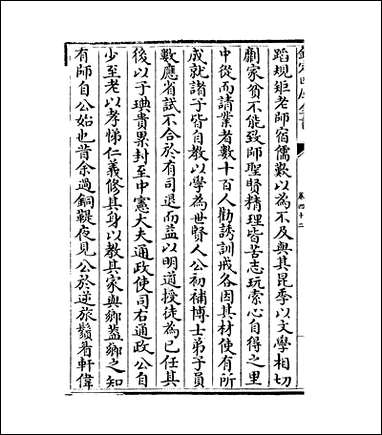 欽定四庫全書
卷四十二
蹈規矩老師宿儒歎以為不及與其昆季以文學相切
劘家貧不能致師聖賢精理皆苦志玩索心自得之里
中從而請業者數十百人勸誘訓戒各因其材使有所
成就諸子皆自教以學為世賢人公初補博士弟子員
數應省試不合於有司退而益以明道授徒為己任其
後以子琠貴累封至中憲大夫通政使司右通政公自
少至老以孝悌仁義修其身以教其家與鄉蓋鄉之知
有師自公始也昔余過銅鞮夜見公於逆旅鬚眉軒偉